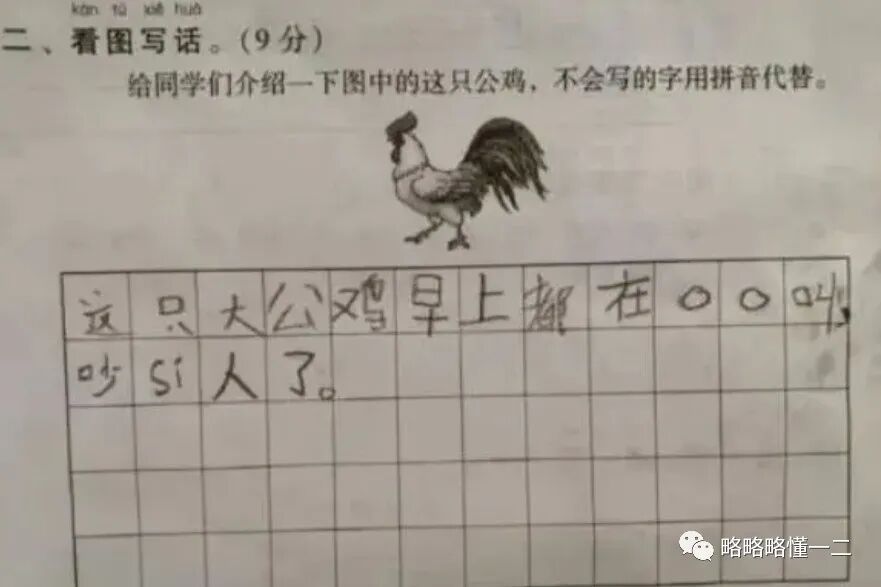 kàn tú xiě huà
二、看图写话。(9分)
给同学们介绍一下图中的这只公鸡，不会写的字用拼音代替。
这只大公鸡早上都在ooo叫，
吵sǐ人了。
略略略懂一二